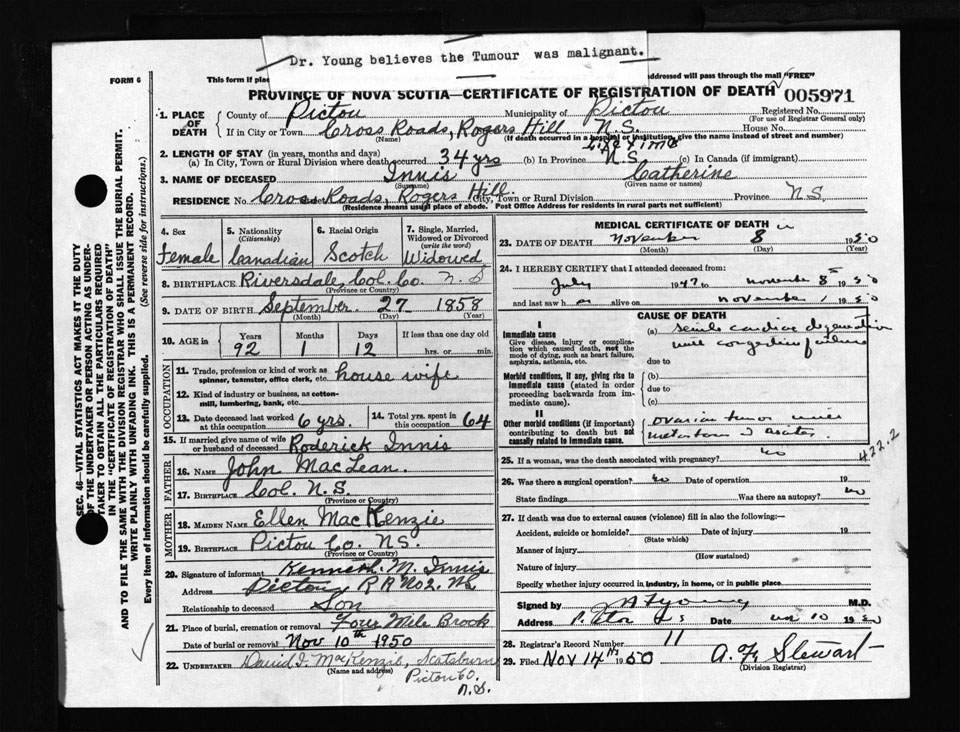 Dr. Young believes the Tumour was malignant.
FORM 6
This form if plac
addressed will pass through the mail "FREE"
PROVINCE OF NOVA SCOTIA—CERTIFICATE OF REGISTRATION OF DEATH
005971
1. PLACE OF DEATH
County of Pictou Municipality of Pictou Registered No.
(For use of Registrar General only)
If in City or Town Cross Roads, Rogers Hill N.S. House No.
(Name) (If death occurred in a hospital or institution, give the name instead of street and number)
2. LENGTH OF STAY (in years, months and days)
(a) In City, Town or Rural Division where death occurred 34 yrs (b) In Province Life time N.S. (c) In Canada (if immigrant)
3. NAME OF DECEASED Innis Catherine
(Surname) (Given name or names)
RESIDENCE No. Cross Roads, Rogers Hill. City, Town or Rural Division Province N.S.
(Residence means usual place of abode. Post Office Address for residents in rural parts not sufficient)
4. Sex Female
5. Nationality (Citizenship) Canadian
6. Racial Origin Scotch
7. Single, Married, Widowed or Divorced (write the word) Widowed
8. BIRTHPLACE Riversdale, Col. Co. N.S
(Province or Country)
9. DATE OF BIRTH September 27 1858
(Month) (Day) (Year)
10. AGE in Years 92 Months 1 Days 12 If less than one day old hrs. or min.
OCCUPATION
11. Trade, profession or kind of work as spinner, teamster, office clerk, etc. house wife
12. Kind of industry or business, as cotton-mill, lumbering, bank, etc.
13. Date deceased last worked at this occupation 6 yrs.
14. Total yrs. spent in this occupation 64
15. If married give name of wife or husband of deceased Roderick Innis
FATHER
16. NAME John MacLean.
17. BIRTHPLACE Col. N.S.
(Province or Country)
MOTHER
18. MAIDEN NAME Ellen MacKenzie
19. BIRTHPLACE Pictou Co. N.S.
(Province or Country)
20. Signature of informant Kenneth. M. Innis
Address Pictou, R R No 2. NS
Relationship to deceased Son
21. Place of burial, cremation or removal Four Mile Brook
Date of burial or removal Nov 10th 1950
22. UNDERTAKER David J. MacKenzie, Scotsburn
(Name and address) Pictou Co. N.S.
MEDICAL CERTIFICATE OF DEATH
23. DATE OF DEATH November 8 1950
(Month) (Day) (Year)
24. I HEREBY CERTIFY that I attended deceased from:
July 1947 to November 8th 1950
and last saw h er alive on November 1 1950
CAUSE OF DEATH
I
Immediate cause
Give disease, injury or complication which caused death, not the mode of dying, such as heart failure, asphyxia, asthenia, etc.
(a) senile cardiac degeneration with congestive failure
due to
Morbid conditions, if any, giving rise to immediate cause (stated in order proceeding backwards from immediate cause).
(b)
due to
(c)
II
Other morbid conditions (if important) contributing to death but not causally related to immediate cause.
ovarian tumor with
422.2
25. If a woman, was the death associated with pregnancy? no
26. Was there a surgical operation? no Date of operation 19
State findings Was there an autopsy? no
27. If death was due to external causes (violence) fill in also the following:—
Accident, suicide or homicide? Date of injury 19
(State which)
Manner of injury
(How sustained)
Nature of injury
Specify whether injury occurred in industry, in home, or in public place.
Signed by Young M.D.
Address Pictou N S Date Nov 10 1950
28. Registrar's Record Number 11
29. Filed Nov 14th 1950 A. F. Stewart
(Division Registrar)
SEC. 46—VITAL STATISTICS ACT MAKES IT THE DUTY
OF THE UNDERTAKER OR PERSON ACTING AS UNDER-
TAKER TO OBTAIN ALL THE PARTICULARS REQUIRED
IN THE "CERTIFICATE OF REGISTRATION OF DEATH"
AND TO FILE THE SAME WITH THE DIVISION REGISTRAR WHO SHALL ISSUE THE BURIAL PERMIT.
WRITE PLAINLY WITH UNFADING INK. THIS IS A PERMANENT RECORD.
Every item of information should be carefully supplied. (See reverse side for instructions.)